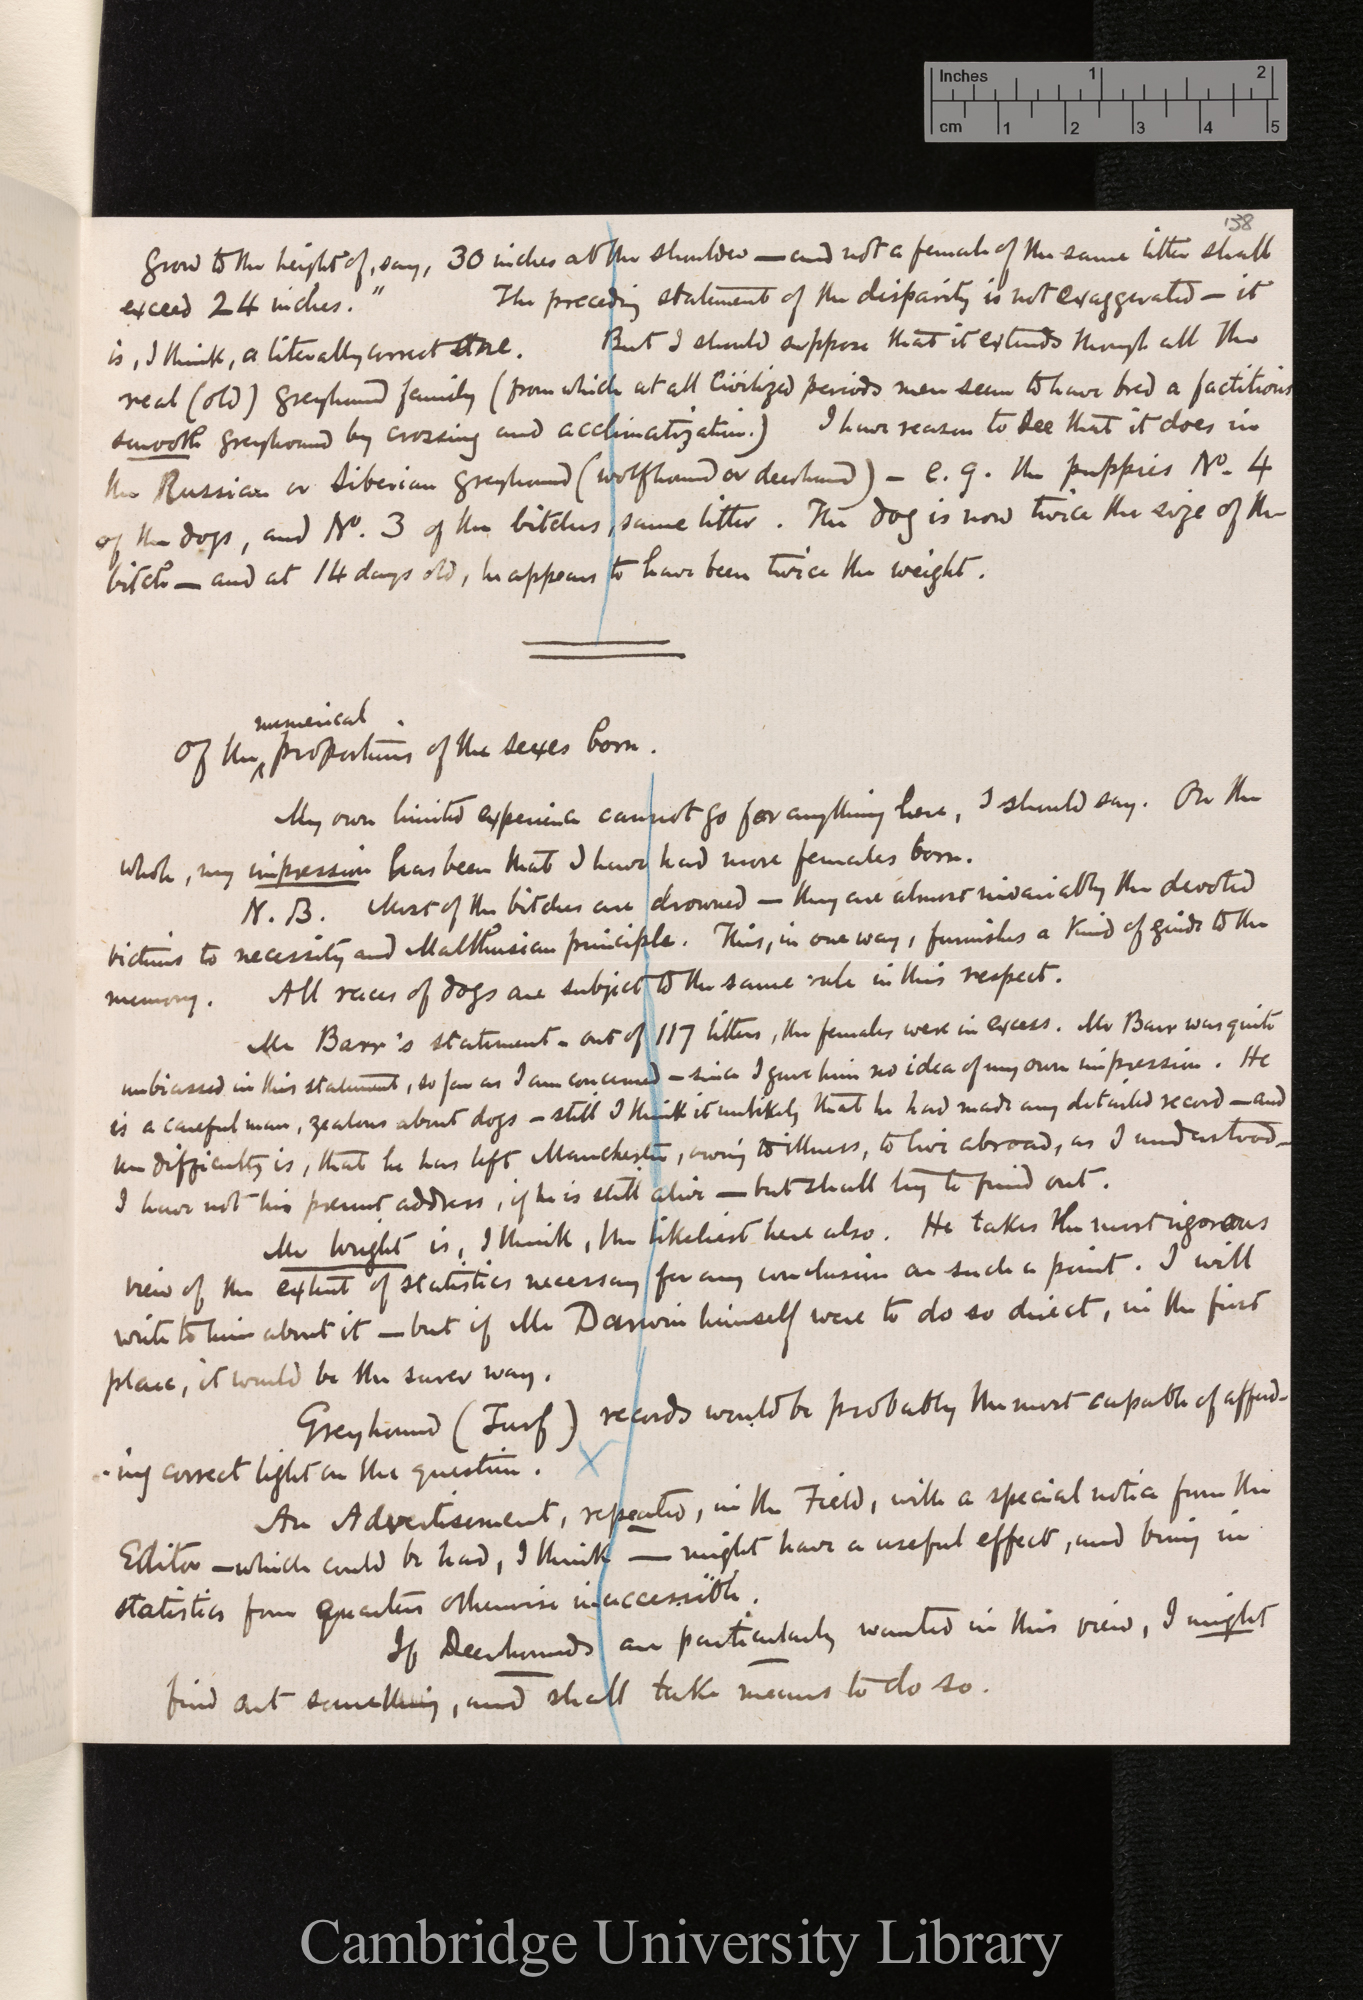 Inches 1 2
cm 1 2 3 4 5
138
grow to the height of, say, 30 inches at the shoulder — and not a female of the same litter shall
exceed 24 inches." The preceding statement of the disparity is not exaggerated — it
is, I think, a literally correct one. But I should suppose that it extends through all the
real (old) greyhound family (from which at all civilized periods men seem to have bred a factitious
smooth greyhound by crossing and acclimatization.) I have reason to see that it does in
the Russian or Siberian greyhound (wolfhound or deerhound) — e.g. the puppies No. 4
of the dogs, and No. 3 of the bitches, same litter. The dog is now twice the size of the
bitch — and at 14 days old, he appears to have been twice the weight.
numerical
Of the ^ proportions of the sexes born.
My own limited experience cannot go for anything here, I should say. On the
whole, my impression has been that I have had more females born.
N.B. Most of the bitches are drowned — they are almost invariably the devoted
victims to necessity and Malthusian principle. This, in one way, furnishes a kind of guide to the
memory. All races of dogs are subject to the same rule in this respect.
Mr Barr's statement - out of 117 litters, the females were in excess. Mr Barr was quite
unbiassed in this statement, so far as I am concerned — since I gave him no idea of my own impression. He
is a careful man, zealous about dogs — still I think it unlikely that he had made any detailed record — and
the difficulty is, that he has left Manchester, owing to illness, to live abroad, as I understood —
I have not his present address, if he is still alive — but shall try to find out.
Mr Wright is, I think, the likeliest here also. He takes the most rigorous
view of the extent of statistics necessary for any conclusion on such a point. I will
write to him about it — but if Mr Darwin himself were to do so direct, in the first
place, it would be the surer way.
Greyhound (Turf) records would be probably the most capable of afford-
-ing correct light on the question.
An Advertisement, repeated, in the Field, with a special notice from the
Editor — which could be had, I think — might have a useful effect, and bring in
statistics from quarters otherwise inaccessible.
If Deerhounds are particularly wanted in this view, I might
find out something, and shall take means to do so.
Cambridge University Library